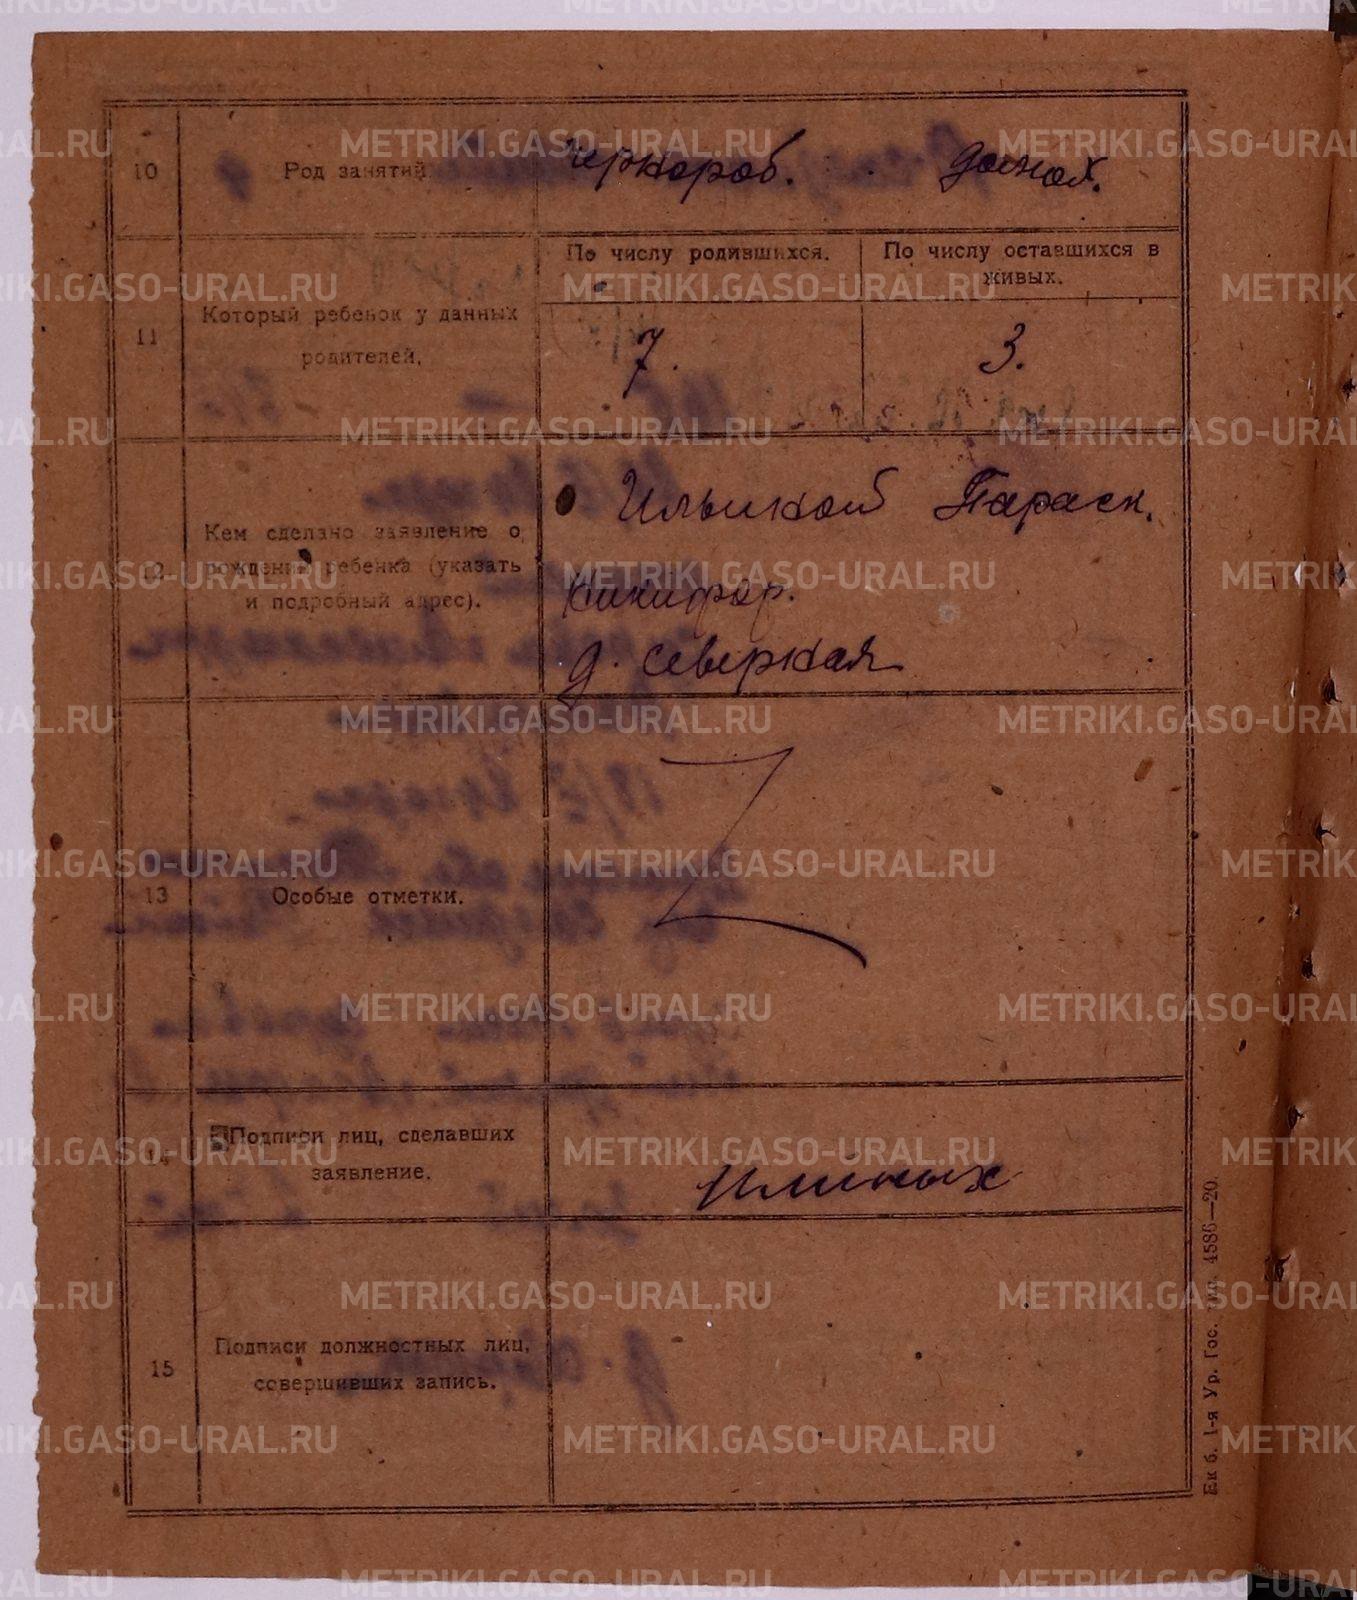 10
Род занятий.
чернораб. домох.
11
Который ребенок у данных
родителей.
По числу родившихся.
По числу оставшихся в
живых.
7.
3.
12
Кем сделано заявление о
рождении ребенка (указать
и подробный адрес).
Параск.
Никифор.
д. северная
13
Особые отметки.
14
Подписи лиц, сделавших
заявление.
15
Подписи должностных лиц,
совершивших запись.
Екб. 1-я Ур. Гос. тип. 4586—20.
METRIKI.GASO-URAL.RU